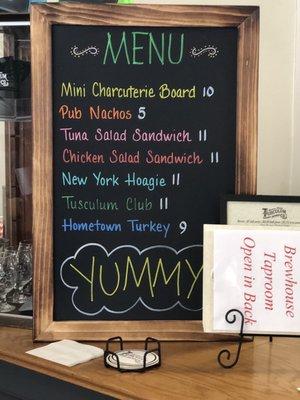 MENU
Mini Charcuterie Board 10
Pub Nachos 5
Tuna Salad Sandwich 11
Chicken Salad Sandwich 11
New York Hoagie 11
Tusculum Club 11
Hometown Turkey 9
YUMMY
TUSCULUM
Brewhouse
Taproom
Open in Back